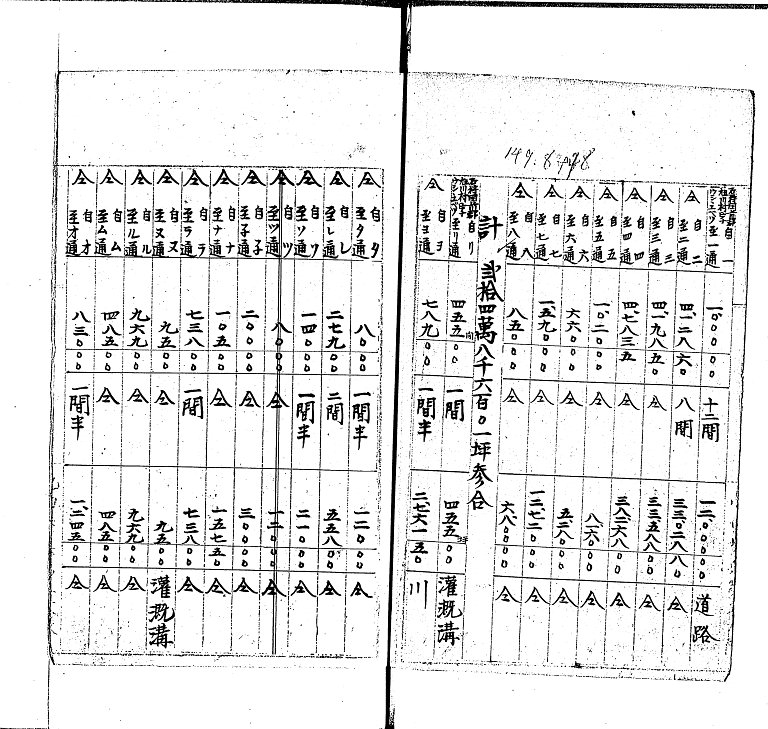 149.8
自一至一通 一〇、〇〇〇〇 十二間 一二〇、〇〇〇〇 道路
仝 自二至二通 四一、二八六〇 八間 三三〇、二八八〇 仝
仝 自三至三通 四一、九八五〇 仝 三三五八八〇〇 仝
仝 自四至四通 四、七八三五 仝 三八、二六八〇 仝
仝 自五至五通 一〇、二〇〇〇 仝 八一、六〇〇〇 仝
仝 自六至六通 六六〇〇〇 仝 五二、八〇〇〇 仝
仝 自七至七通 一五、九〇〇〇 仝 一二七、二〇〇〇 仝
仝 自八至八通 八五〇〇 仝 六八〇〇〇 仝
計 弐拾四萬八千六百〇一坪参合
自リ至リ通 四五五〇〇 一間 四五五〇〇 灌漑溝
仝 自ヨ至ヨ通 七八九〇〇 一間半 二七六一五〇 川
仝 自タ至タ通 八〇〇〇 一間半 一二〇〇〇 仝
仝 自レ至レ通 二七九〇〇 二間 五五八〇〇 仝
仝 自ソ至ソ通 一四〇〇〇 一間半 二一〇〇〇 仝
仝 自ツ至ツ通 八〇〇〇 仝 一二〇〇〇 仝
仝 自子至子通 二〇〇〇〇 仝 三〇〇〇〇 仝
仝 自ナ至ナ通 一〇五〇〇 仝 一五七五〇 仝
仝 自ラ至ラ通 七三八〇〇 一間 七三八〇〇 仝
仝 自ヌ至ヌ通 九五〇〇 仝 九五〇〇 灌漑溝
仝 自ル至ル通 九六九〇〇 仝 九六九〇〇 仝
仝 自ム至ム通 四八五〇〇 仝 四八五〇〇 仝
仝 自オ至オ通 八三〇〇〇 一間半 一、二四五〇〇 仝